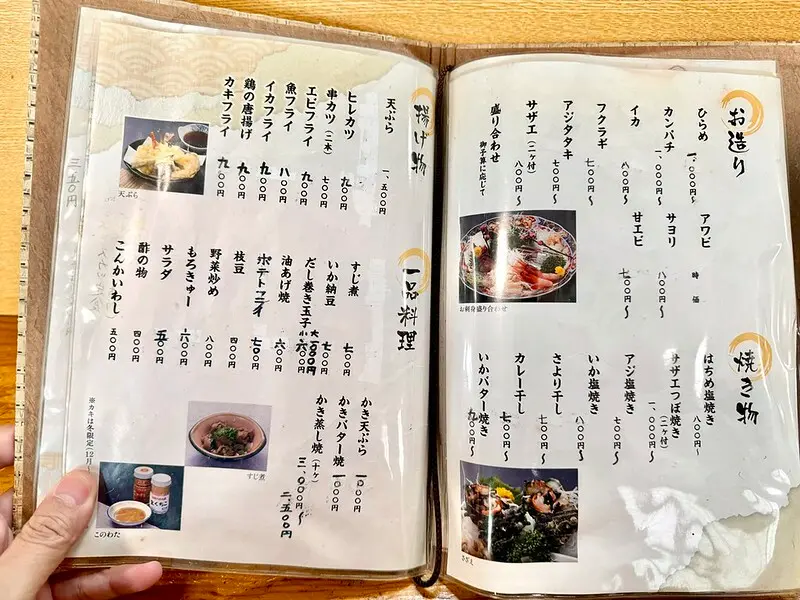 お造り
ひらめ 一、〇〇〇円〜
カンパチ 一、〇〇〇円〜
イカ 八〇〇円〜
フクラギ 七〇〇円〜
アジタタキ 七〇〇円〜
サザエ(二ヶ付) 八〇〇円〜
盛り合わせ 御予算に応じて
アワビ 時価
サヨリ 八〇〇円〜
甘エビ 七〇〇円〜
お刺身盛り合わせ
焼き物
はちめ塩焼き 八〇〇円〜
サザエつぼ焼き(二ヶ付) 一、〇〇〇円〜
アジ塩焼き 七〇〇円〜
いか塩焼き 八〇〇円〜
さより干し 七〇〇円〜
カレー干し 七〇〇円〜
いかバター焼き 九〇〇円〜
さざえ
揚げ物
天ぷら 一、五〇〇円
ヒレカツ 九〇〇円
串カツ(二本) 七〇〇円
エビフライ 九〇〇円
魚フライ 八〇〇円
イカフライ 九〇〇円
鶏の唐揚げ 九〇〇円
カキフライ 九〇〇円
天ぷら
一品料理
すじ煮 七〇〇円
いか納豆 七〇〇円
だし巻き玉子 大 小六〇〇円
油あげ焼 六〇〇円
ポテトフライ 七〇〇円
枝豆 四〇〇円
野菜炒め 八〇〇円
もろきゅー 六〇〇円
サラダ 五〇〇円
酢の物 四〇〇円
こんかいわし 五〇〇円
かき天ぷら
かきバター焼
かき蒸し焼(十ヶ) 三、〇〇〇円〜
二、五〇〇円
すじ煮
※カキは冬限定(12月〜
このわた
三、五〇円